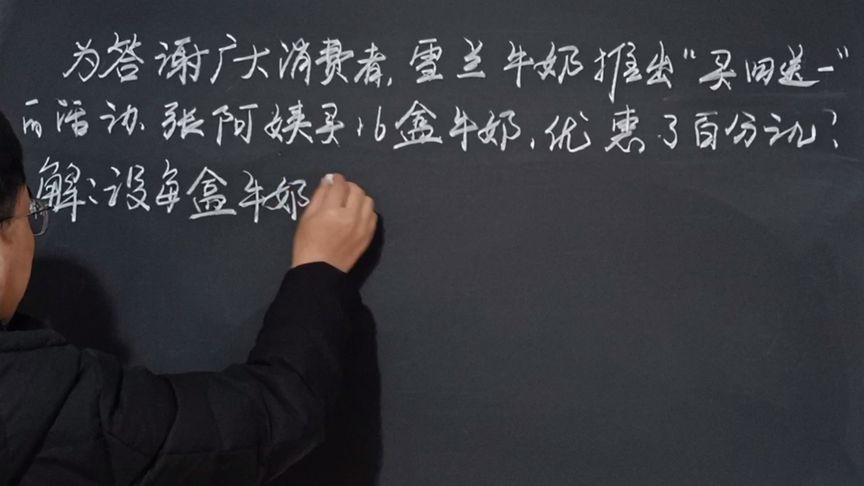 为答谢广大消费者,雪兰牛奶推出"买四送一"
的活动.张阿姨买16盒牛奶.优惠了百分之几?
解:设每盒牛奶